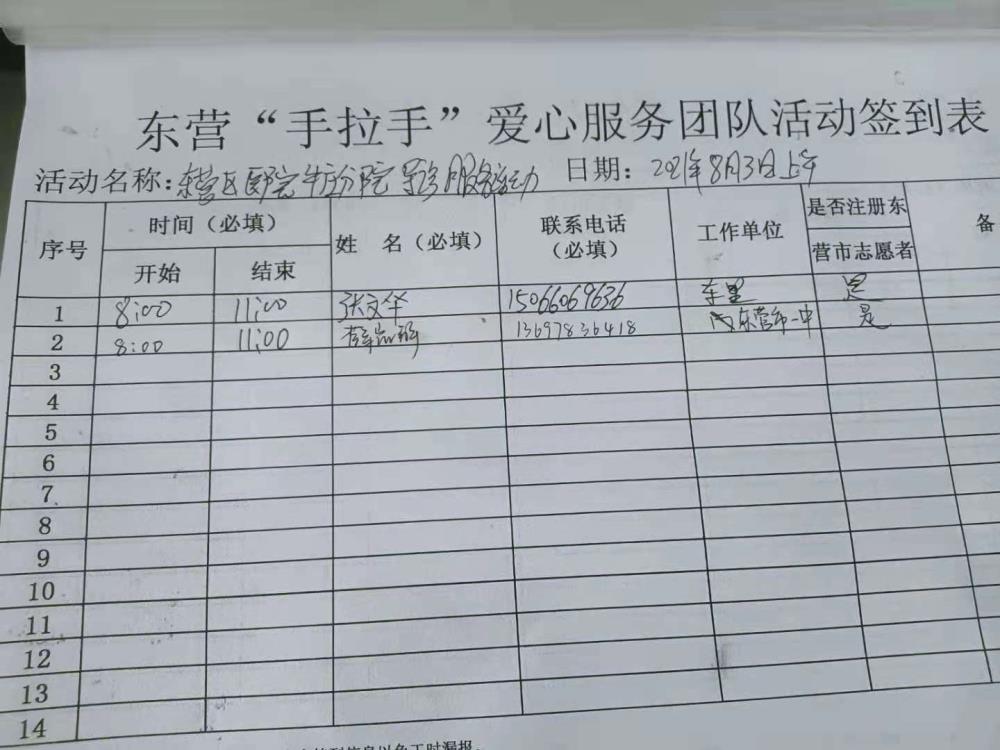 东营“手拉手”爱心服务团队活动签到表
活动名称：东营区医院牛庄分院导诊服务活动 日期：2021年8月3日上午
序号 时间（必填） 姓 名（必填） 联系电话（必填） 工作单位 是否注册东营市志愿者 备
开始 结束
1 8:00 11:00 张文华 15066069636 车里 是
2 8:00 11:00 13697836418 东营市一中 是
3
4
5
6
7
8
9
10
11
12
13
14
到信息以免工时漏报。